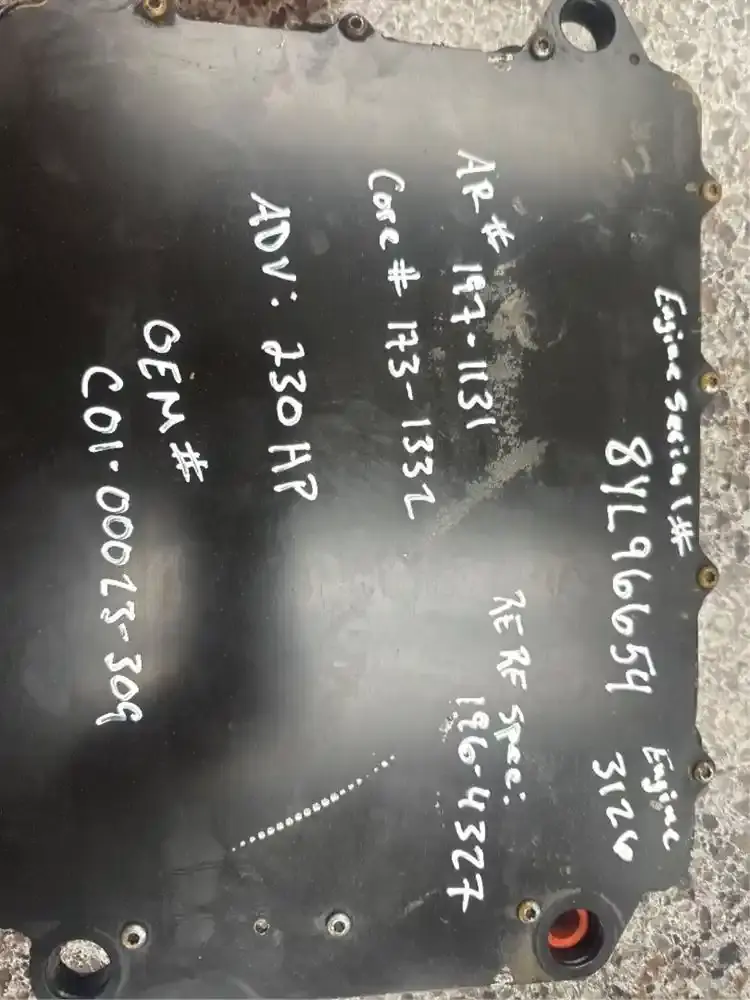 Engine Serial #
8YL96654
Engine
3126
AR # 197-1131
Core # 173-1332
RERF Spec:
196-4327
ADV: 230 HP
OEM #
C01-00023-309